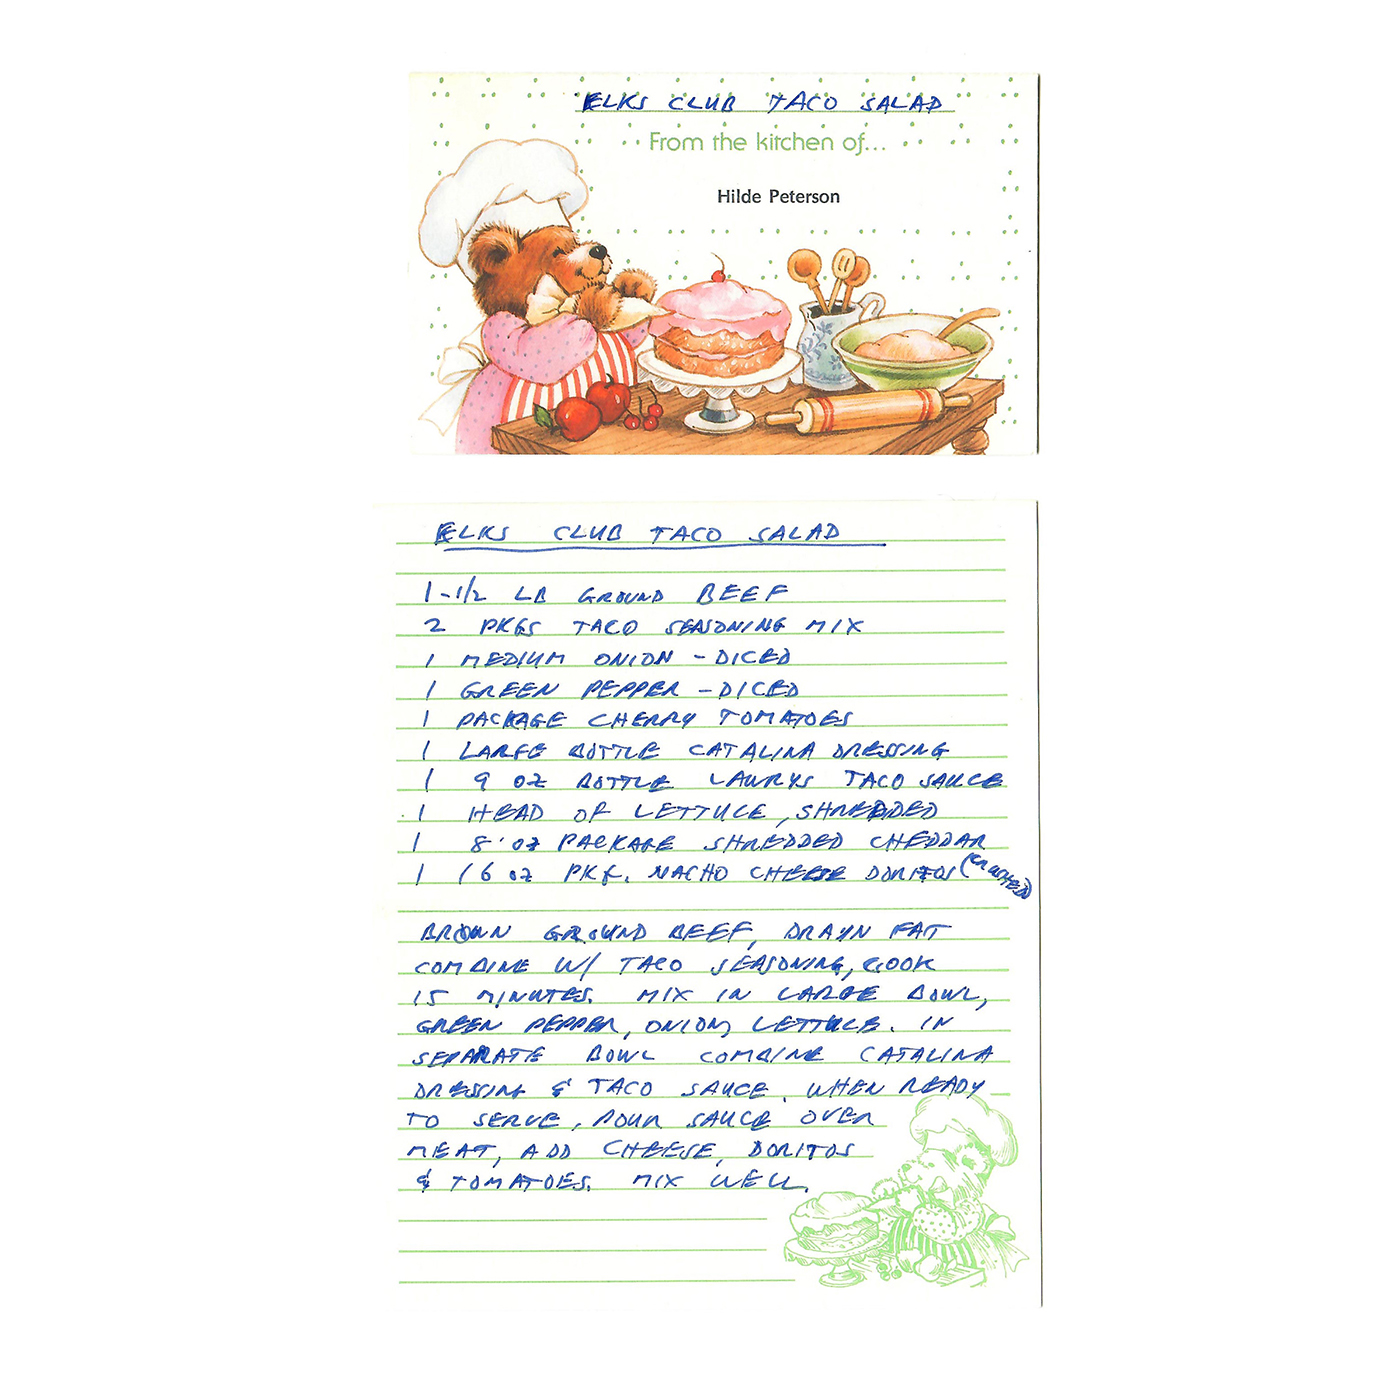 ELKS CLUB TACO SALAD
From the kitchen of...
Hilde Peterson
ELKS CLUB TACO SALAD
1-1/2 LB GROUND BEEF
2 PKGS TACO SEASONING MIX
1 MEDIUM ONION - DICED
1 GREEN PEPPER - DICED
1 PACKAGE CHERRY TOMATOES
1 LARGE BOTTLE CATALINA DRESSING
1 9 OZ BOTTLE LAWRYS TACO SAUCE
1 HEAD OF LETTUCE, SHREDDED
1 8 oz PACKAGE SHREDDED CHEDDAR
1 16 oz PKG. NACHO CHEESE DORITOS (CRUSHED)
BROWN GROUND BEEF, DRAYN FAT
COMBINE W/ TACO SEASONING, COOK
15 MINUTES. MIX IN LARGE BOWL,
GREEN PEPPER, ONION, LETTUCE. IN
SEPARATE BOWL COMBINE CATALINA
DRESSING & TACO SAUCE. WHEN READY
TO SERVE, POUR SAUCE OVER
MEAT, ADD CHEESE, DORITOS
& TOMATOES. MIX WELL.